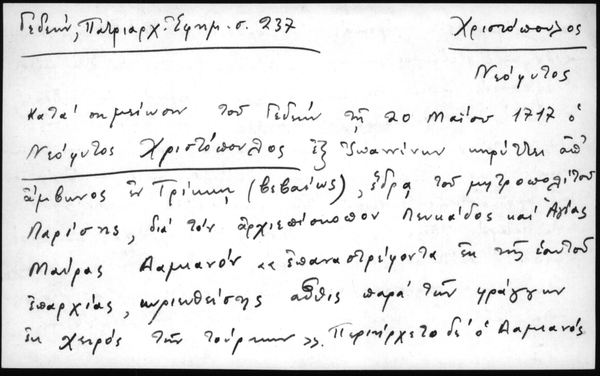 Γεδεών, Πατριαρχ. Ἐφημ. σ. 237
Χριστόπουλος
Νεόφυτος
Κατά σημείωσιν τοῦ Γεδεών τῇ 20 Μαΐου 1717 ὁ
Νεόφυτος Χριστόπουλος ἐξ Ἰωαννίνων κηρύττει ἀπ'
ἄμβωνος ἐν Τρίκκῃ (βεβαίως), ἕδρᾳ τοῦ μητροπολίτου
Λαρίσης, διά τόν ἀρχιεπίσκοπον Λευκάδος καί Ἁγίας
Μαύρας Δαμιανόν «ἐπαναστρέψοντα ἐκ τῆς ἑαυτοῦ
ἐπαρχίας, κυριευθείσης αὖθις παρά τῶν φράγγων
ἐκ χειρός τῶν τούρκων». Περιήρχετο δέ ὁ Δαμιανός